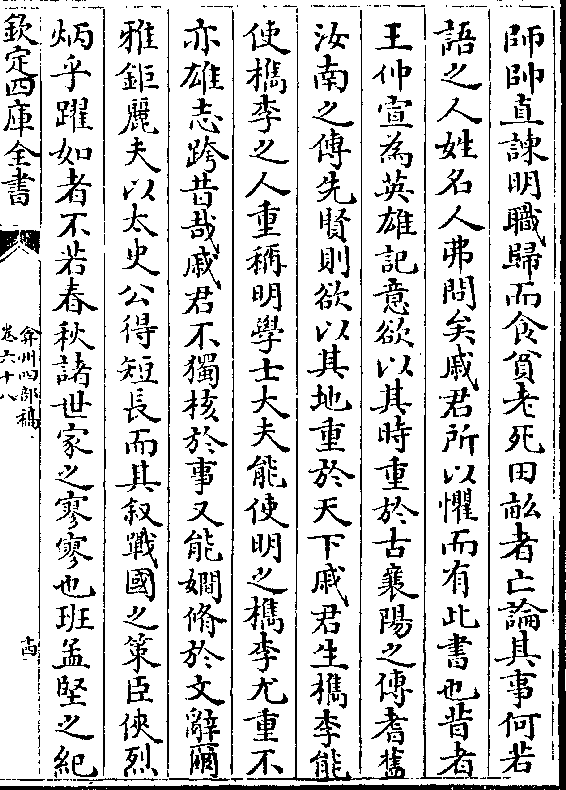 師帥直諫明職歸而食貧老死田畝者亡論其事何若
語之人姓名人弗問矣戚君所以懼而有此書也昔者
王仲宣為英雄記意欲以其時重於古襄陽之傳耆舊
汝南之傳先賢則欲以其地重於天下戚君生檇李能
使檇李之人重稱明學士大夫能使明之檇李尤重不
亦雄志跨昔哉戚君不獨核於事又能嫺脩於文辭爾
雅鉅麗夫以太史公得短長而其叙戰國之策臣俠烈
炳乎躍如者不若春秋諸世家之寥寥也班孟堅之紀
欽定四庫全書
弇州四部稿
卷六十八
十四